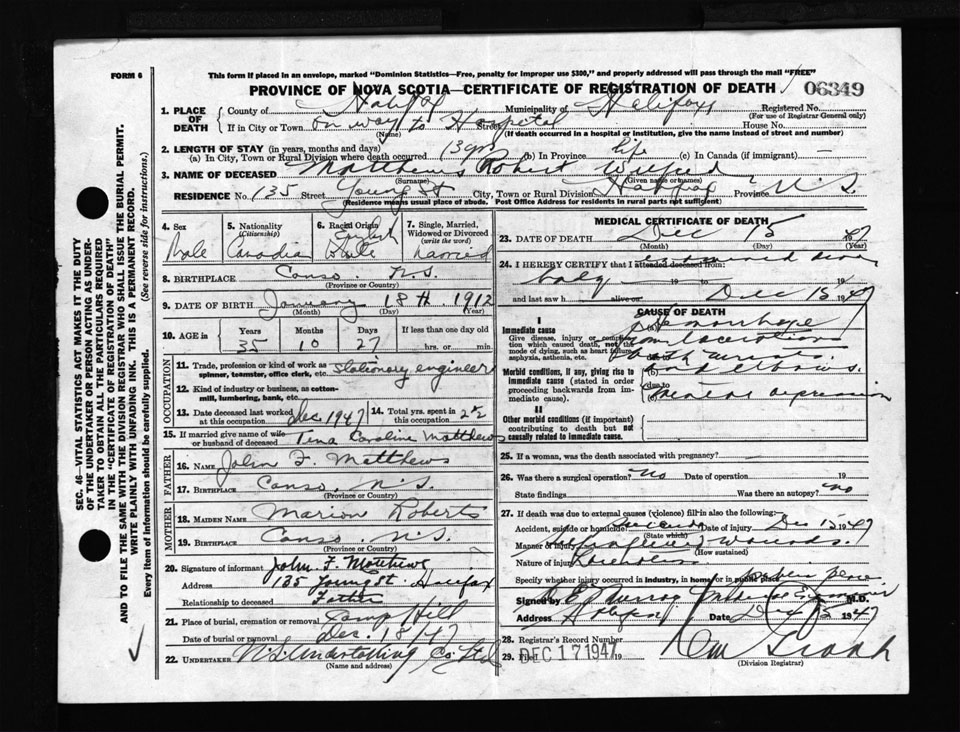 FORM 6
This form if placed in an envelope, marked "Dominion Statistics—Free, penalty for improper use $300," and properly addressed will pass through the mail "FREE"
PROVINCE OF NOVA SCOTIA—CERTIFICATE OF REGISTRATION OF DEATH 06349
1. PLACE OF DEATH
County of Halifax Municipality of Halifax Registered No.
(For use of Registrar General only)
If in City or Town on way to Hospital Street House No.
(Name) (If death occurred in a hospital or institution, give the name instead of street and number)
2. LENGTH OF STAY (in years, months and days)
(a) In City, Town or Rural Division where death occurred 13 yrs (b) In Province life (c) In Canada (if immigrant) —
3. NAME OF DECEASED Matthews Robert Wilfred
(Surname) (Given name or names)
RESIDENCE No. 135 Street Young St City, Town or Rural Division Halifax Province N.S.
(Residence means usual place of abode. Post Office Address for residents in rural parts not sufficient)
4. Sex Male
5. Nationality (Citizenship) Canadian
6. Racial Origin English
7. Single, Married, Widowed or Divorced (write the word) Married
8. BIRTHPLACE Canso N.S.
(Province or Country)
9. DATE OF BIRTH January 18th 1912
(Month) (Day) (Year)
10. AGE in Years Months Days If less than one day old
35 10 27 hrs. or min.
OCCUPATION
11. Trade, profession or kind of work as spinner, teamster, office clerk, etc. Stationary engineer
12. Kind of industry or business, as cotton-mill, lumbering, bank, etc.
13. Date deceased last worked at this occupation Dec 1947 14. Total yrs. spent in this occupation 2½
15. If married give name of wife or husband of deceased Tena Caroline Matthews
FATHER
16. NAME John F. Matthews
17. BIRTHPLACE Canso N.S.
(Province or Country)
MOTHER
18. MAIDEN NAME Marion Roberts
19. BIRTHPLACE Canso N.S.
(Province or Country)
20. Signature of informant John F. Matthews
Address 135 Young St. Halifax
Relationship to deceased Father
21. Place of burial, cremation or removal Camp Hill
Date of burial or removal Dec. 18/47
22. UNDERTAKER N.S. Undertaking Co. Ltd
(Name and address)
MEDICAL CERTIFICATE OF DEATH
23. DATE OF DEATH Dec 15 47
(Month) (Day) (Year)
24. I HEREBY CERTIFY that I attended deceased from:
19 to 19
and last saw h alive on Dec 15 1947
CAUSE OF DEATH
I
Immediate cause (a) Hemorrhage
Give disease, injury or complication which caused death, not the mode of dying, such as heart failure, asphyxia, asthenia, etc.
from lacerations
both wrists
and elbows.
Morbid conditions, if any, giving rise to immediate cause (stated in order proceeding backwards from immediate cause).
due to
Mental depression
II
Other morbid conditions (if important) contributing to death but not causally related to immediate cause.
25. If a woman, was the death associated with pregnancy? —
26. Was there a surgical operation? No Date of operation 19
State findings Was there an autopsy? No
27. If death was due to external causes (violence) fill in also the following:
Accident, suicide or homicide? Suicide Date of injury Dec 15 1947
(State which)
Manner of injury Self inflicted wounds.
(How sustained)
Nature of injury
Specify whether injury occurred in industry, in home or in public place
Signed by Medical Examiner M.D.
Address Halifax Date Dec 15 1947
28. Registrar's Record Number
29. Filed DEC 17 1947 19
(Division Registrar)
SEC. 46—VITAL STATISTICS ACT MAKES IT THE DUTY
OF THE UNDERTAKER OR PERSON ACTING AS UNDER-
TAKER TO OBTAIN ALL THE PARTICULARS REQUIRED
IN THE "CERTIFICATE OF REGISTRATION OF DEATH"
AND TO FILE THE SAME WITH THE DIVISION REGISTRAR WHO SHALL ISSUE THE BURIAL PERMIT.
WRITE PLAINLY WITH UNFADING INK. THIS IS A PERMANENT RECORD.
Every item of information should be carefully supplied. (See reverse side for instructions.)